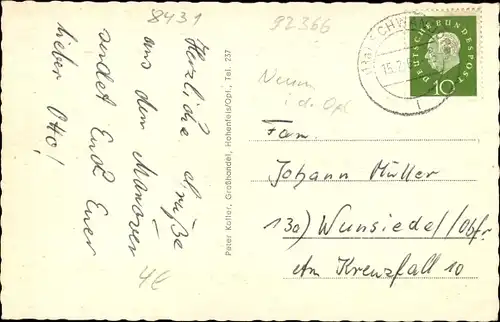 8431
92366
Herzliche Grüße
aus dem Manöver
sendet Euch Euer
lieber Otto!
4€
Peter Koller, Großhandel, Hohenfels/Opf., Tel. 237
DEUTSCHE BUNDESPOST
10
SCHWA
15.2.
Neum
i. d. Opf
Fam.
Johann Müller
13a) Wunsiedel/Obfr.
Am Kreuzfall 10